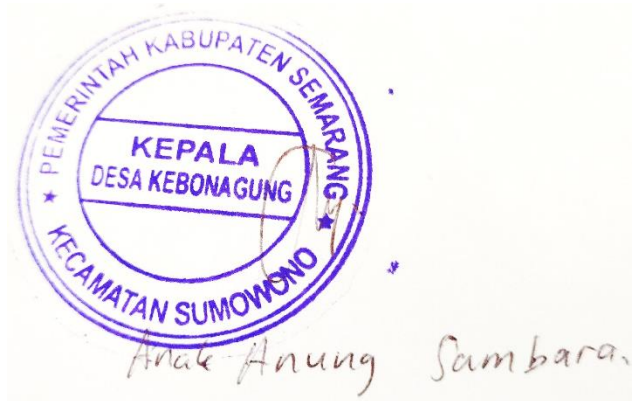 PEMERINTAH KABUPATEN SEMARANG
KEPALA
DESA KEBONAGUNG
KECAMATAN SUMOWONO
Anak Anung Sambara.